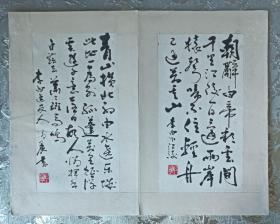 朝辭白帝彩雲間
千里江陵一日還兩岸
猿聲啼不住輕舟
已過萬重山 李白下江陵
青山橫北郭白水遶東城
此地一為別孤蓬萬里征浮
雲遊子意落日故人情揮手
自茲去蕭蕭班馬鳴
李白送友人 書